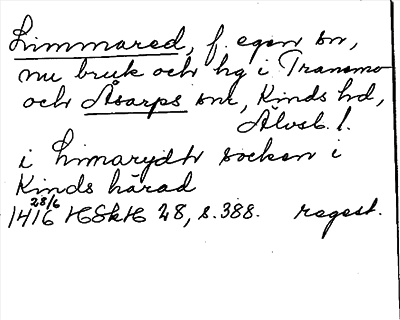 Limmared, f. egen sn,
nu bruk och hg i Transmo
och Åsarps snr, Kinds hd,
Älvsb. l.
i Limarydh socken i
Kinds härad
28/6
1416 HSkH 28, s. 388. regest.